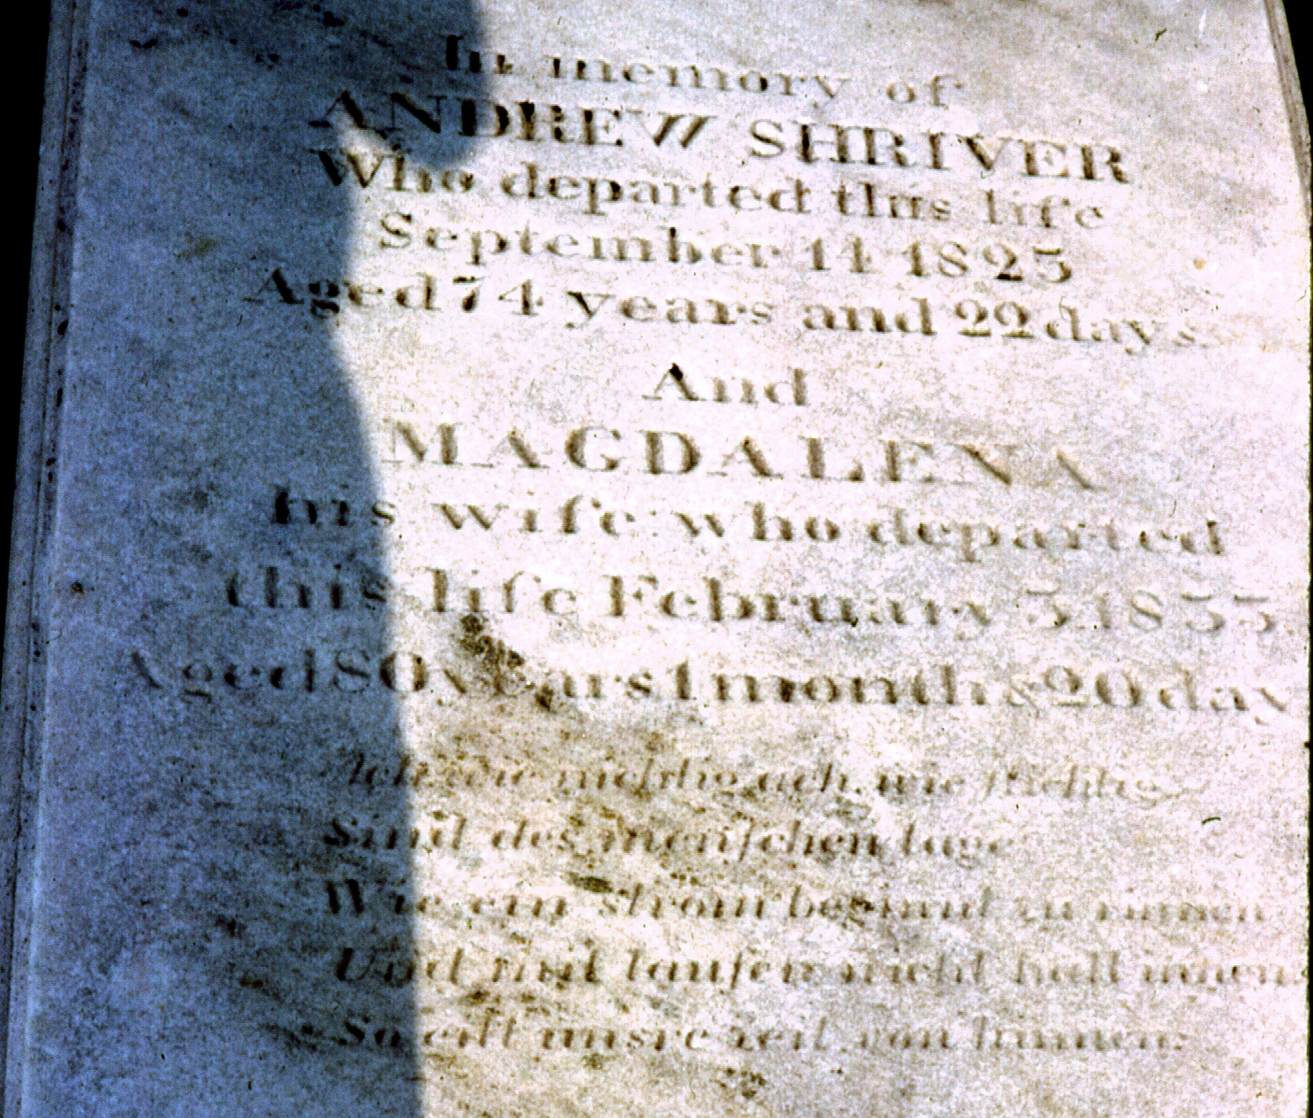 In memory of
ANDREW SHRIVER
Who departed this life
September 14 1823
Aged 74 years and 22 days
And
MAGDALENA
his wife who departed
this life February 3.1833
Aged 80 years 1 month & 20 day
Ach wie nichtig, ach, wie flichtig
Sind des menſchen tage
Wie ein strom beginnt zu rinnen
Und mit laufen nicht halt innen
So eilt unsre zeit von hinnen.